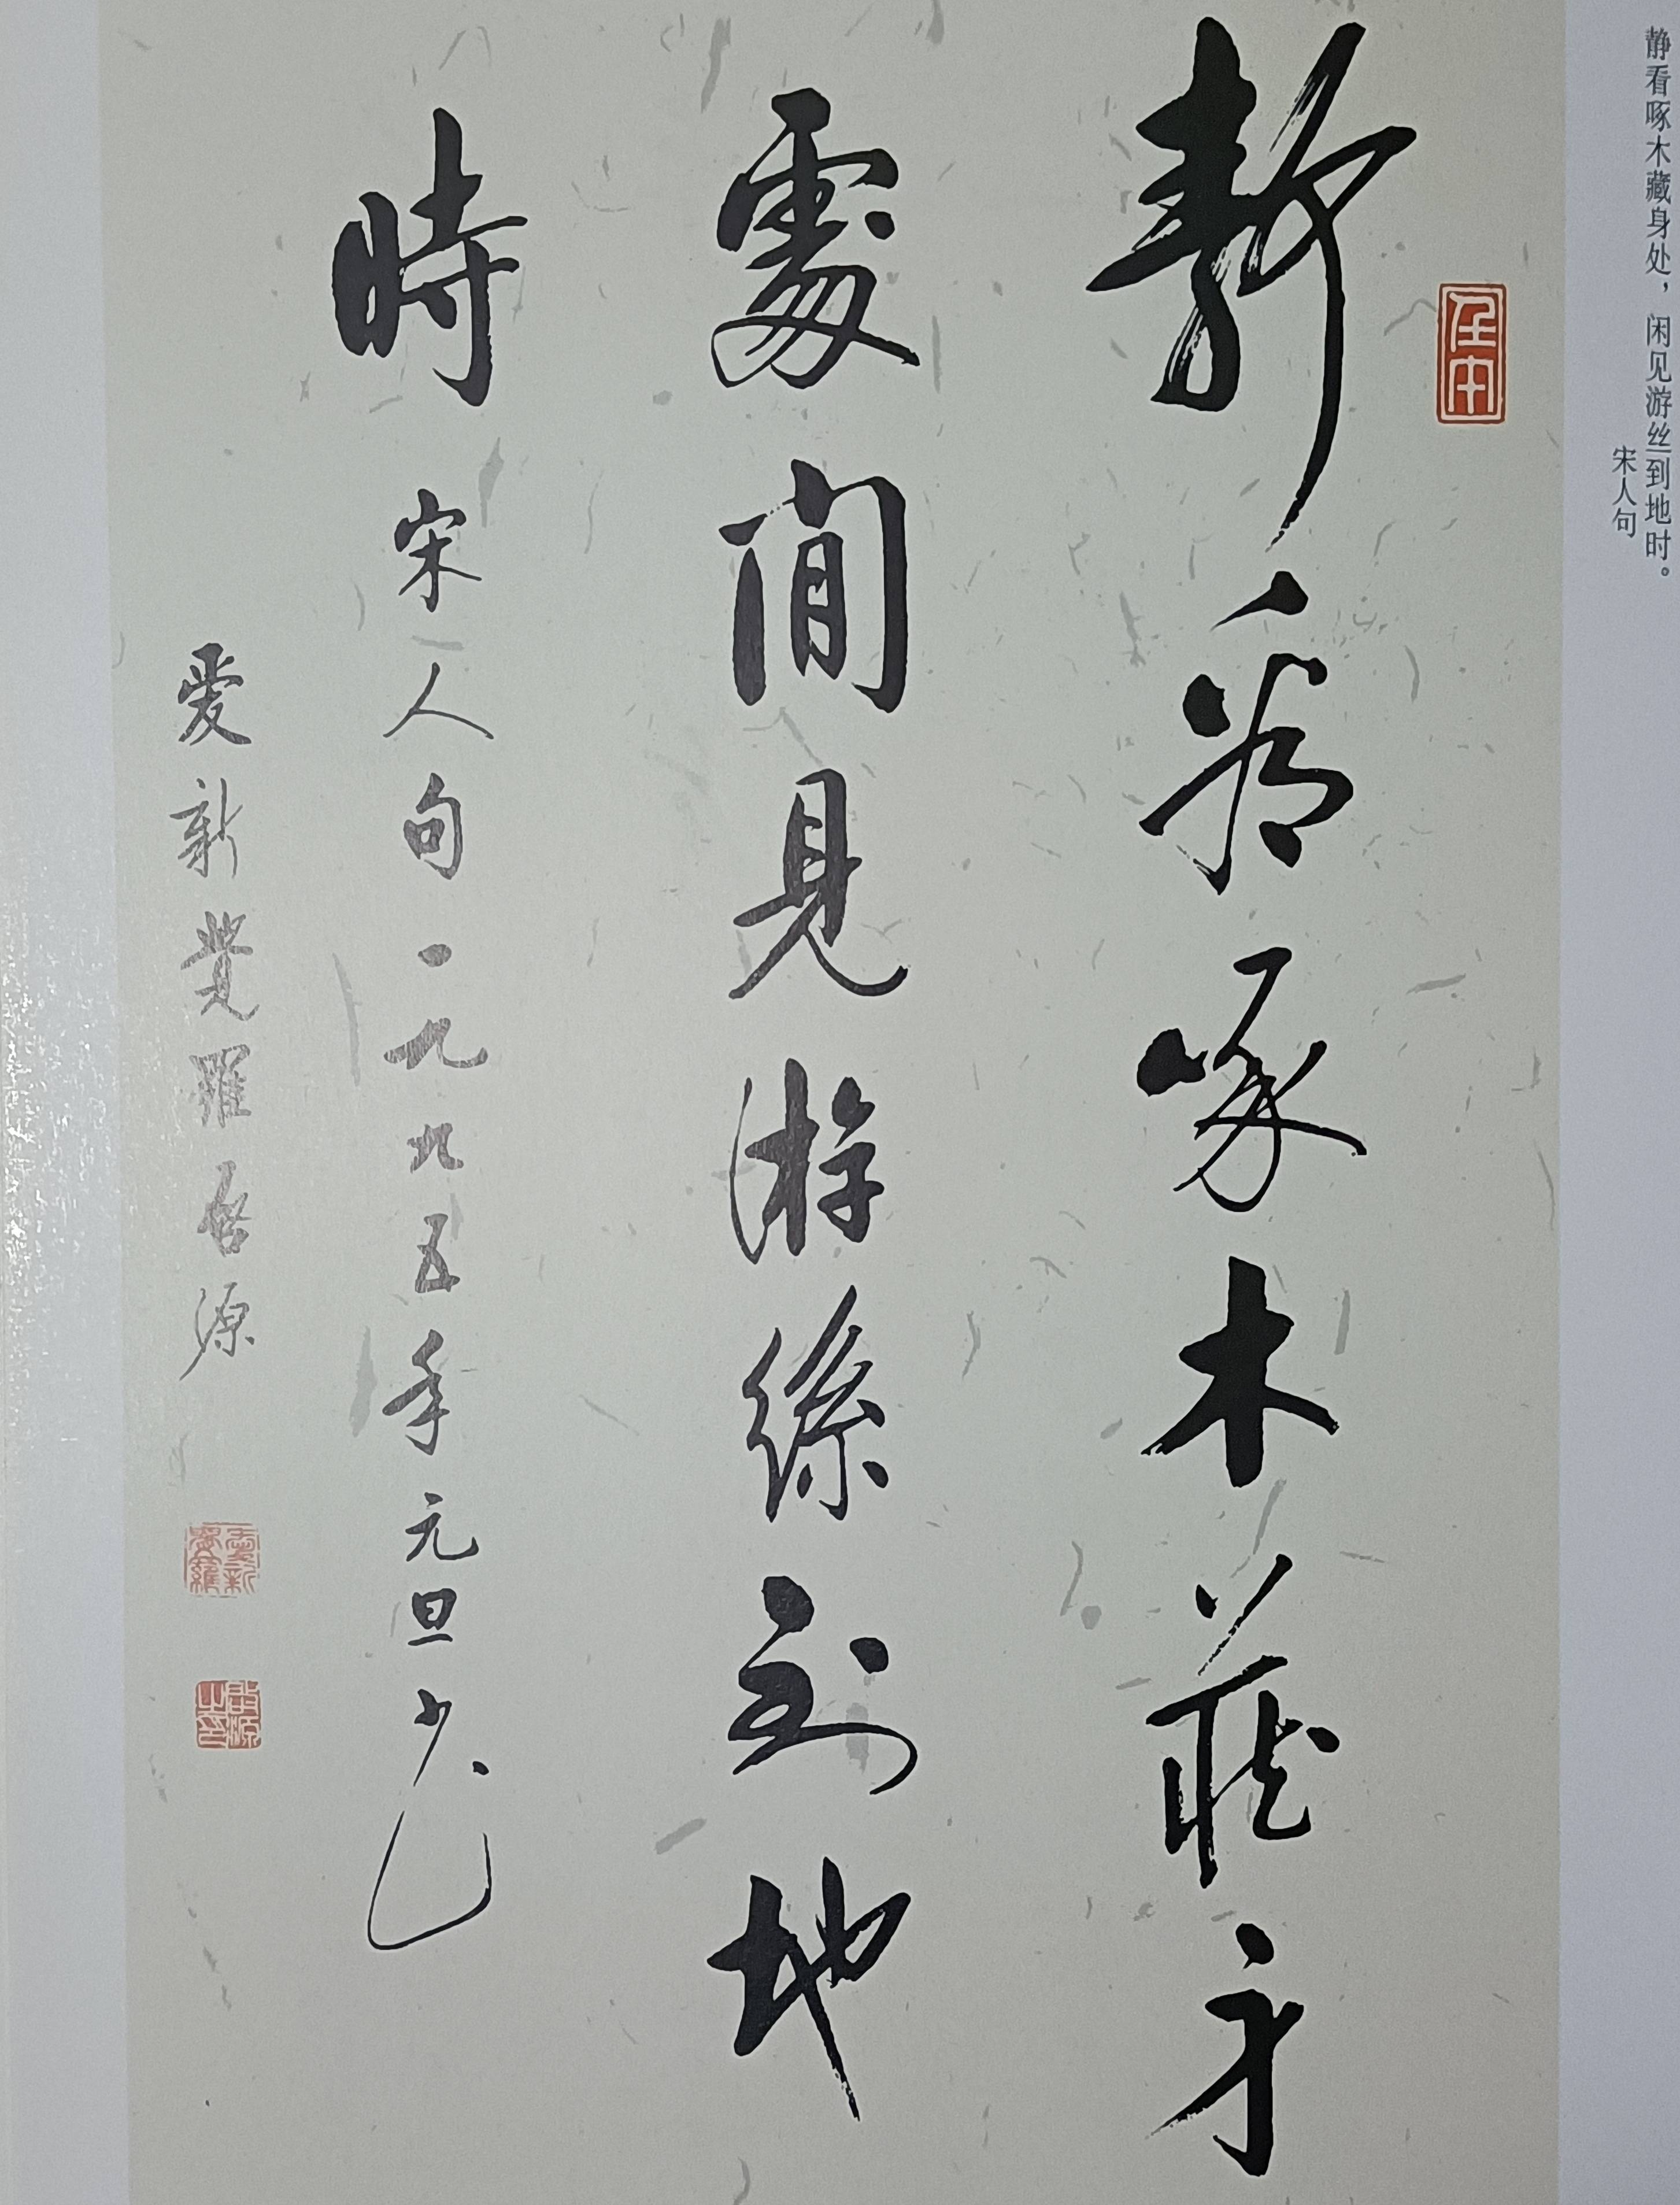 静看啄木藏身处，闲见游丝到地时。
宋人句
靜看啄木藏身
處閒見游絲到地
時
宋人句一九九五年元旦少允
爱新覺羅启源
愛新覺羅
啟源之印